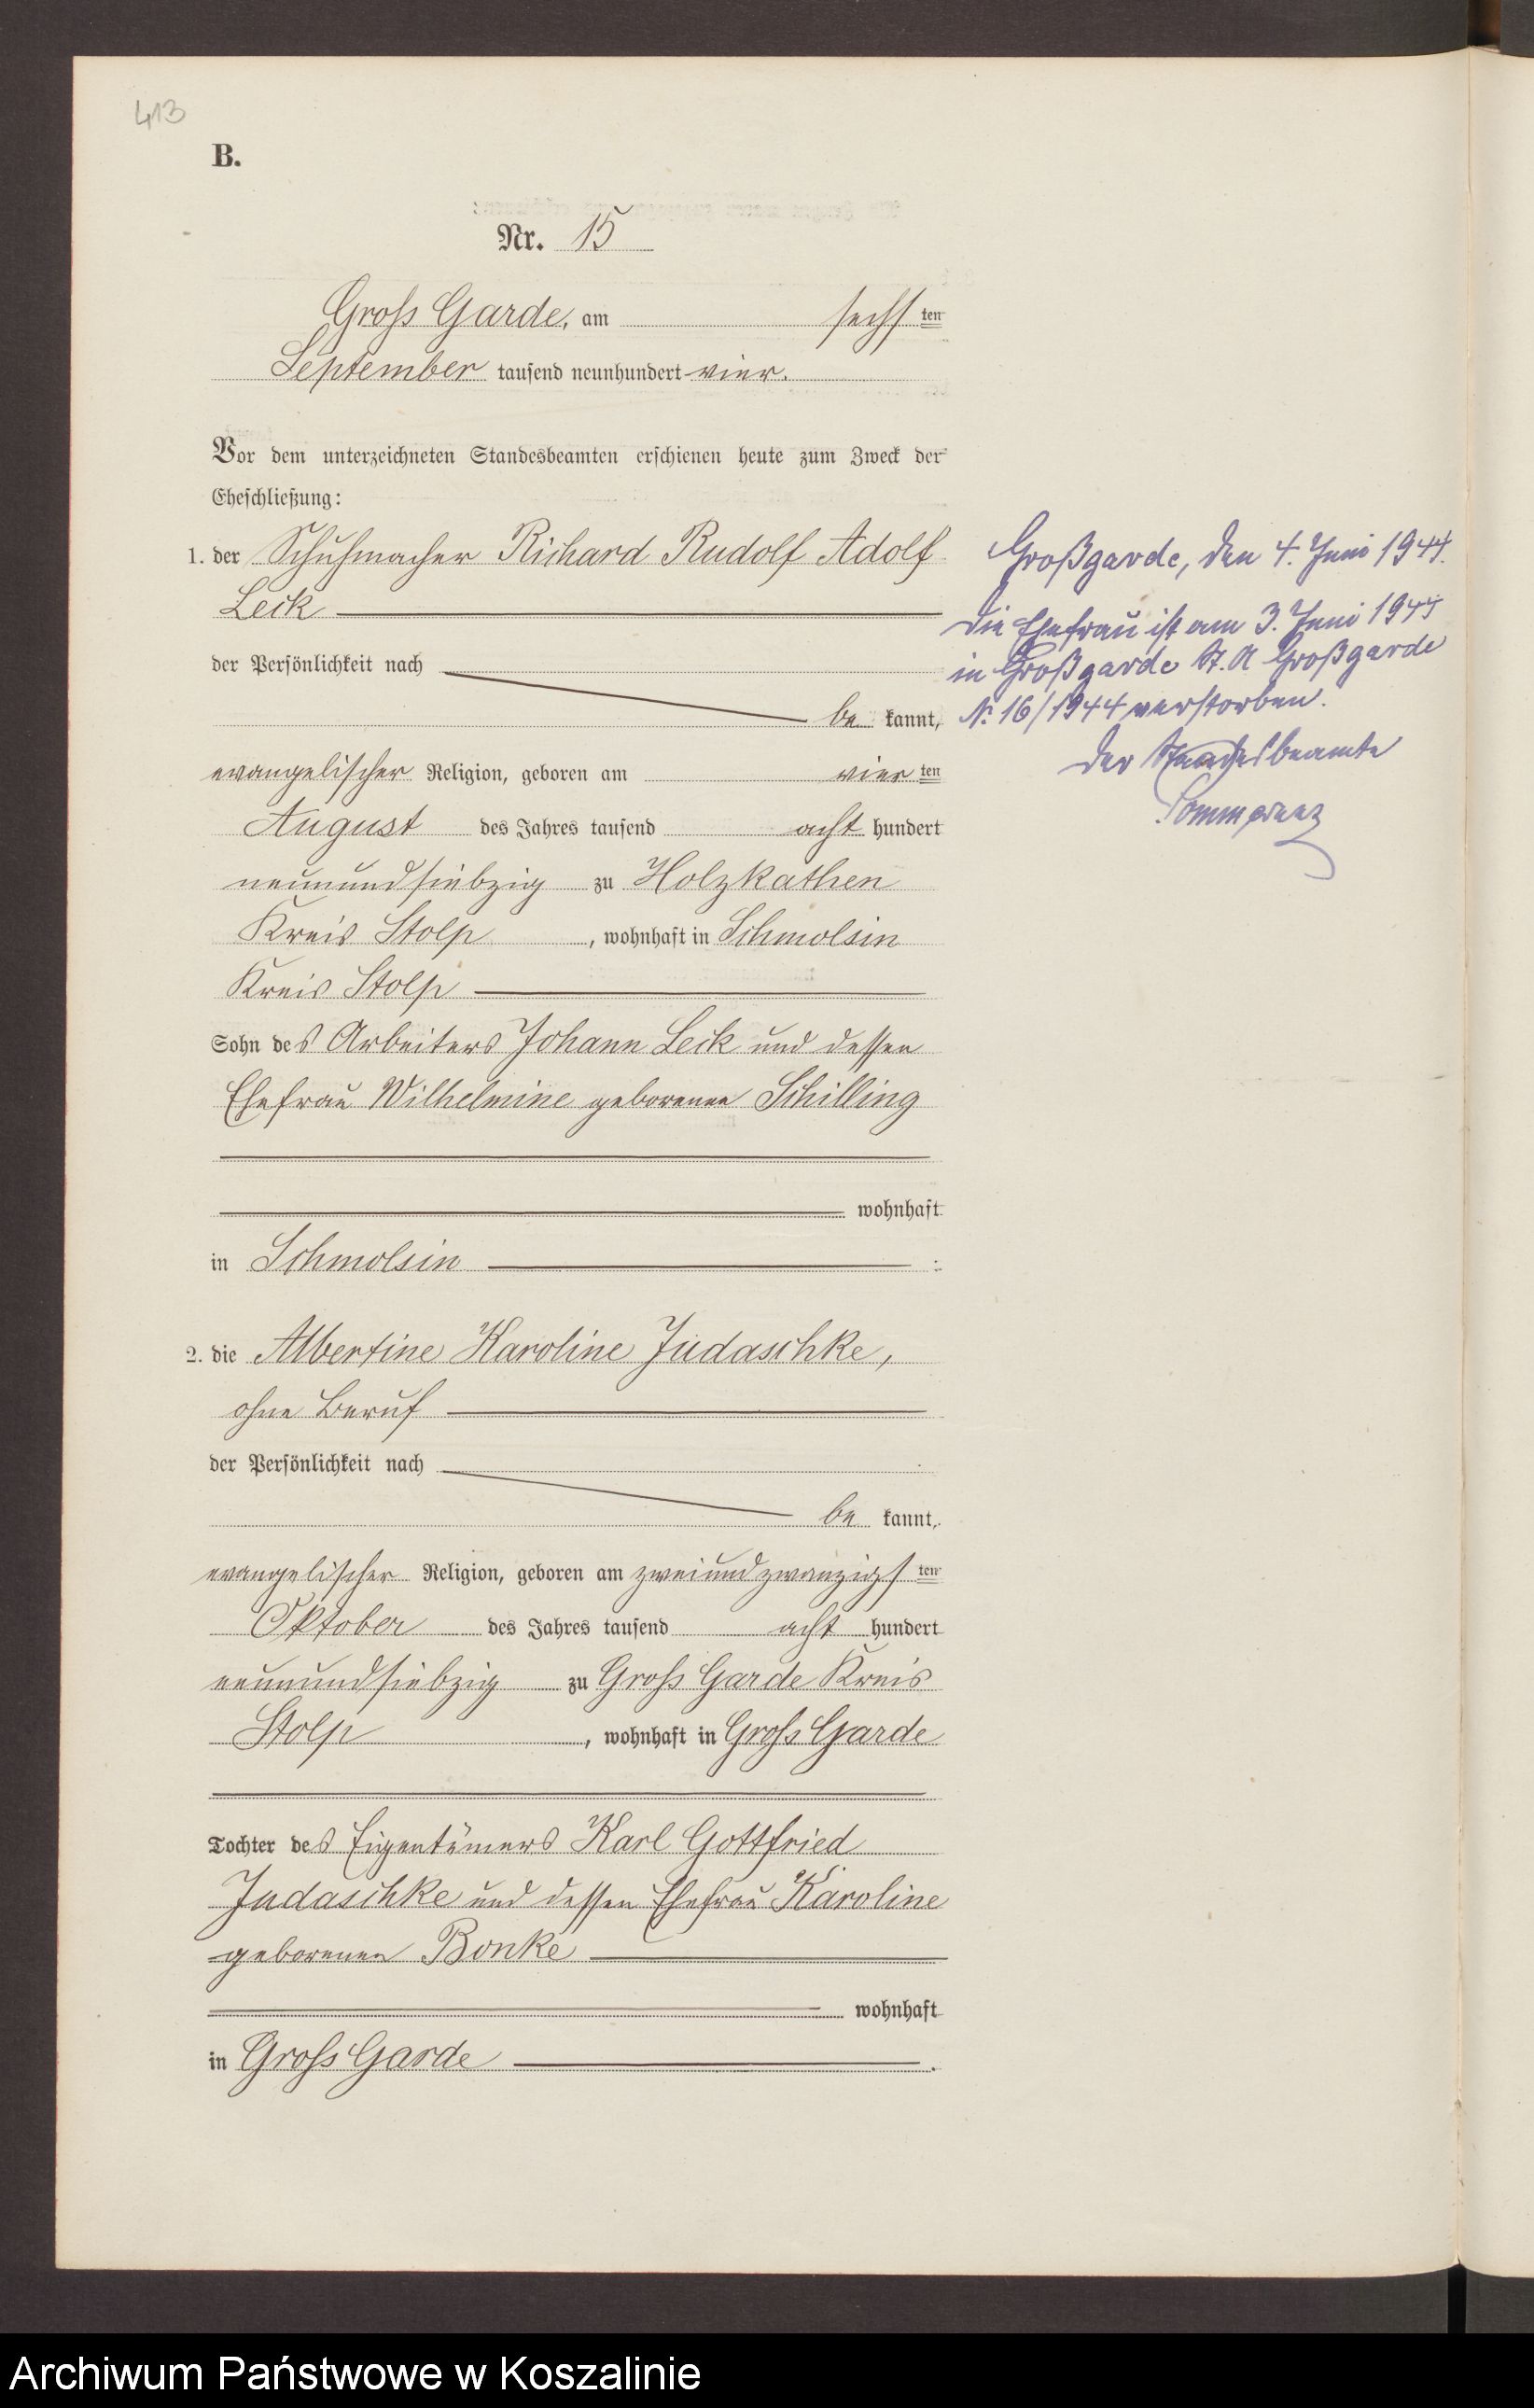 413
B.
Nr. 15
Gross Garde, am sechsten
September tausend neunhundert vier.
Vor dem unterzeichneten Standesbeamten erschienen heute zum Zweck der
Eheschließung:
1. der Schuhmacher Richard Rudolf Adolf
Leick
der Persönlichkeit nach
be kannt,
evangelischer Religion, geboren am vierten
August des Jahres tausend acht hundert
neunundsiebzig zu Holzkathen
Kreis Stolp, wohnhaft in Schmolsin
Kreis Stolp
Sohn des Arbeiters Johann Leick und dessen
Ehefrau Wilhelmine geborenen Schilling
wohnhaft
in Schmolsin :
2. die Albertine Karoline Judaschke,
ohne Beruf
der Persönlichkeit nach
be kannt,
evangelischer Religion, geboren am zweiundzwanzigsten
Oktober des Jahres tausend acht hundert
neunundsiebzig zu Gross Garde Kreis
Stolp, wohnhaft in Gross Garde
Tochter des Eigentümers Karl Gottfried
Judaschke und dessen Ehefrau Karoline
geborenen Bonke
wohnhaft
in Gross Garde.
Großgarde, den 4. Juni 1944.
Die Ehefrau ist am 3. Juni 1944
in Großgarde St. A Großgarde
N: 16/1944 verstorben.
Der Standesbeamte
Archiwum Państwowe w Koszalinie